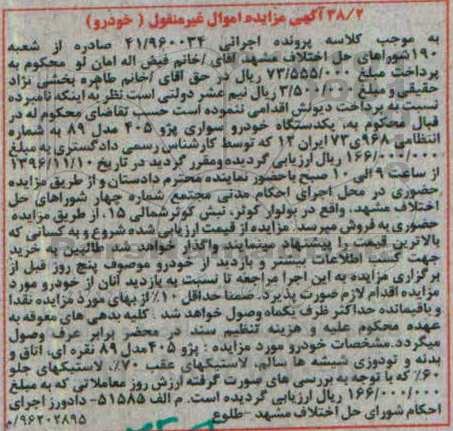 ۳۸/۲ آگهی مزایده اموال غیرمنقول ( خودرو )
به موجب کلاسه پرونده اجرائی ۴۱/۹۶۰۰۳۴ صادره از شعبه
۱۹۰شوراهای حل اختلاف مشهد آقای /خانم فیض اله امان لو محکوم به
پرداخت مبلغ ۷۳/۵۵۵/۰۰۰ ریال در حق آقای /خانم طاهره بخشی نژاد
حقیقی و مبلغ ۳/۵۰۰/۰۰۰ ریال نیم عشر دولتی است نظر به اینکه نامبرده
نسبت به پرداخت دیونش اقدامی ننموده است حسب تقاضای محکوم له در
قبال محکوم به، یکدستگاه خودرو سواری پژو ۴۰۵ مدل ۸۹ به شماره
انتظامی ۹۶۸ی۷۳ ایران ۱۲ که توسط کارشناس رسمی دادگستری به مبلغ
۱۶۶/۰۰۰/۰۰۰ ریال ارزیابی گردیده ومقرر گردید در تاریخ ۱۳۹۶/۱۱/۱۰
از ساعت ۹ الی ۱۰ صبح باحضور نماینده محترم دادستان و از طریق مزایده
حضوری در محل اجرای احکام مدنی مجتمع شماره چهار شوراهای حل
اختلاف مشهد، واقع در بولوار کوثر، نبش کوثرشمالی ۱۵، از طریق مزایده
حضوری به فروش میرسد. مزایده از قیمت ارزیابی شده شروع و به کسانی که
بالاترین قیمت را پیشنهاد مینمایند واگذار خواهد شد طالبین به خرید
جهت کسب اطلاعات بیشتر و بازدید از خودرو موصوف پنج روز قبل از
برگزاری مزایده به این اجرا مراجعه تا نسبت به بازدید آنان از خودرو مورد
مزایده اقدام لازم صورت پذیرد. ضمنا حداقل ۱۰٪ از بهای مورد مزایده نقدا
و باقیمانده حداکثر ظرف یکماه وصول خواهد شد : کلیه بدهی های معوقه به
عهده محکوم علیه و هزینه تنظیم سند در محضر برابر عرف وصول
میگردد.مشخصات خودرو مورد مزایده : پژو ۴۰۵مدل ۸۹ نقره ای، اتاق و
بدنه و تودوزی شیشه ها سالم، لاستیکهای عقب ۷۰٪، لاستیکهای جلو
۶۰٪ که با توجه به بررسی های صورت گرفته ارزش روز معاملاتی که به مبلغ
۱۶۶/۰۰۰/۰۰۰ ریال ارزیابی گردیده است. م الف ۵۱۵۸۵- دادورز اجرای
احکام شورای حل اختلاف مشهد -طلوع ۹۶۲۰۲۸۹۵/م